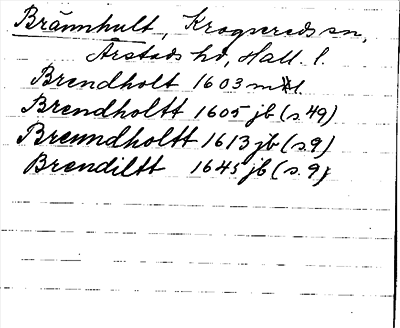 Brännhult, Krogsereds sn,
Årstads hd, Hall. l.
Brendholt 1603 mtl
Brendholtt 1605 jb (s. 49)
Brenndholtt 1613 jb (s. 9)
Brendiltt 1645 jb (s. 9)